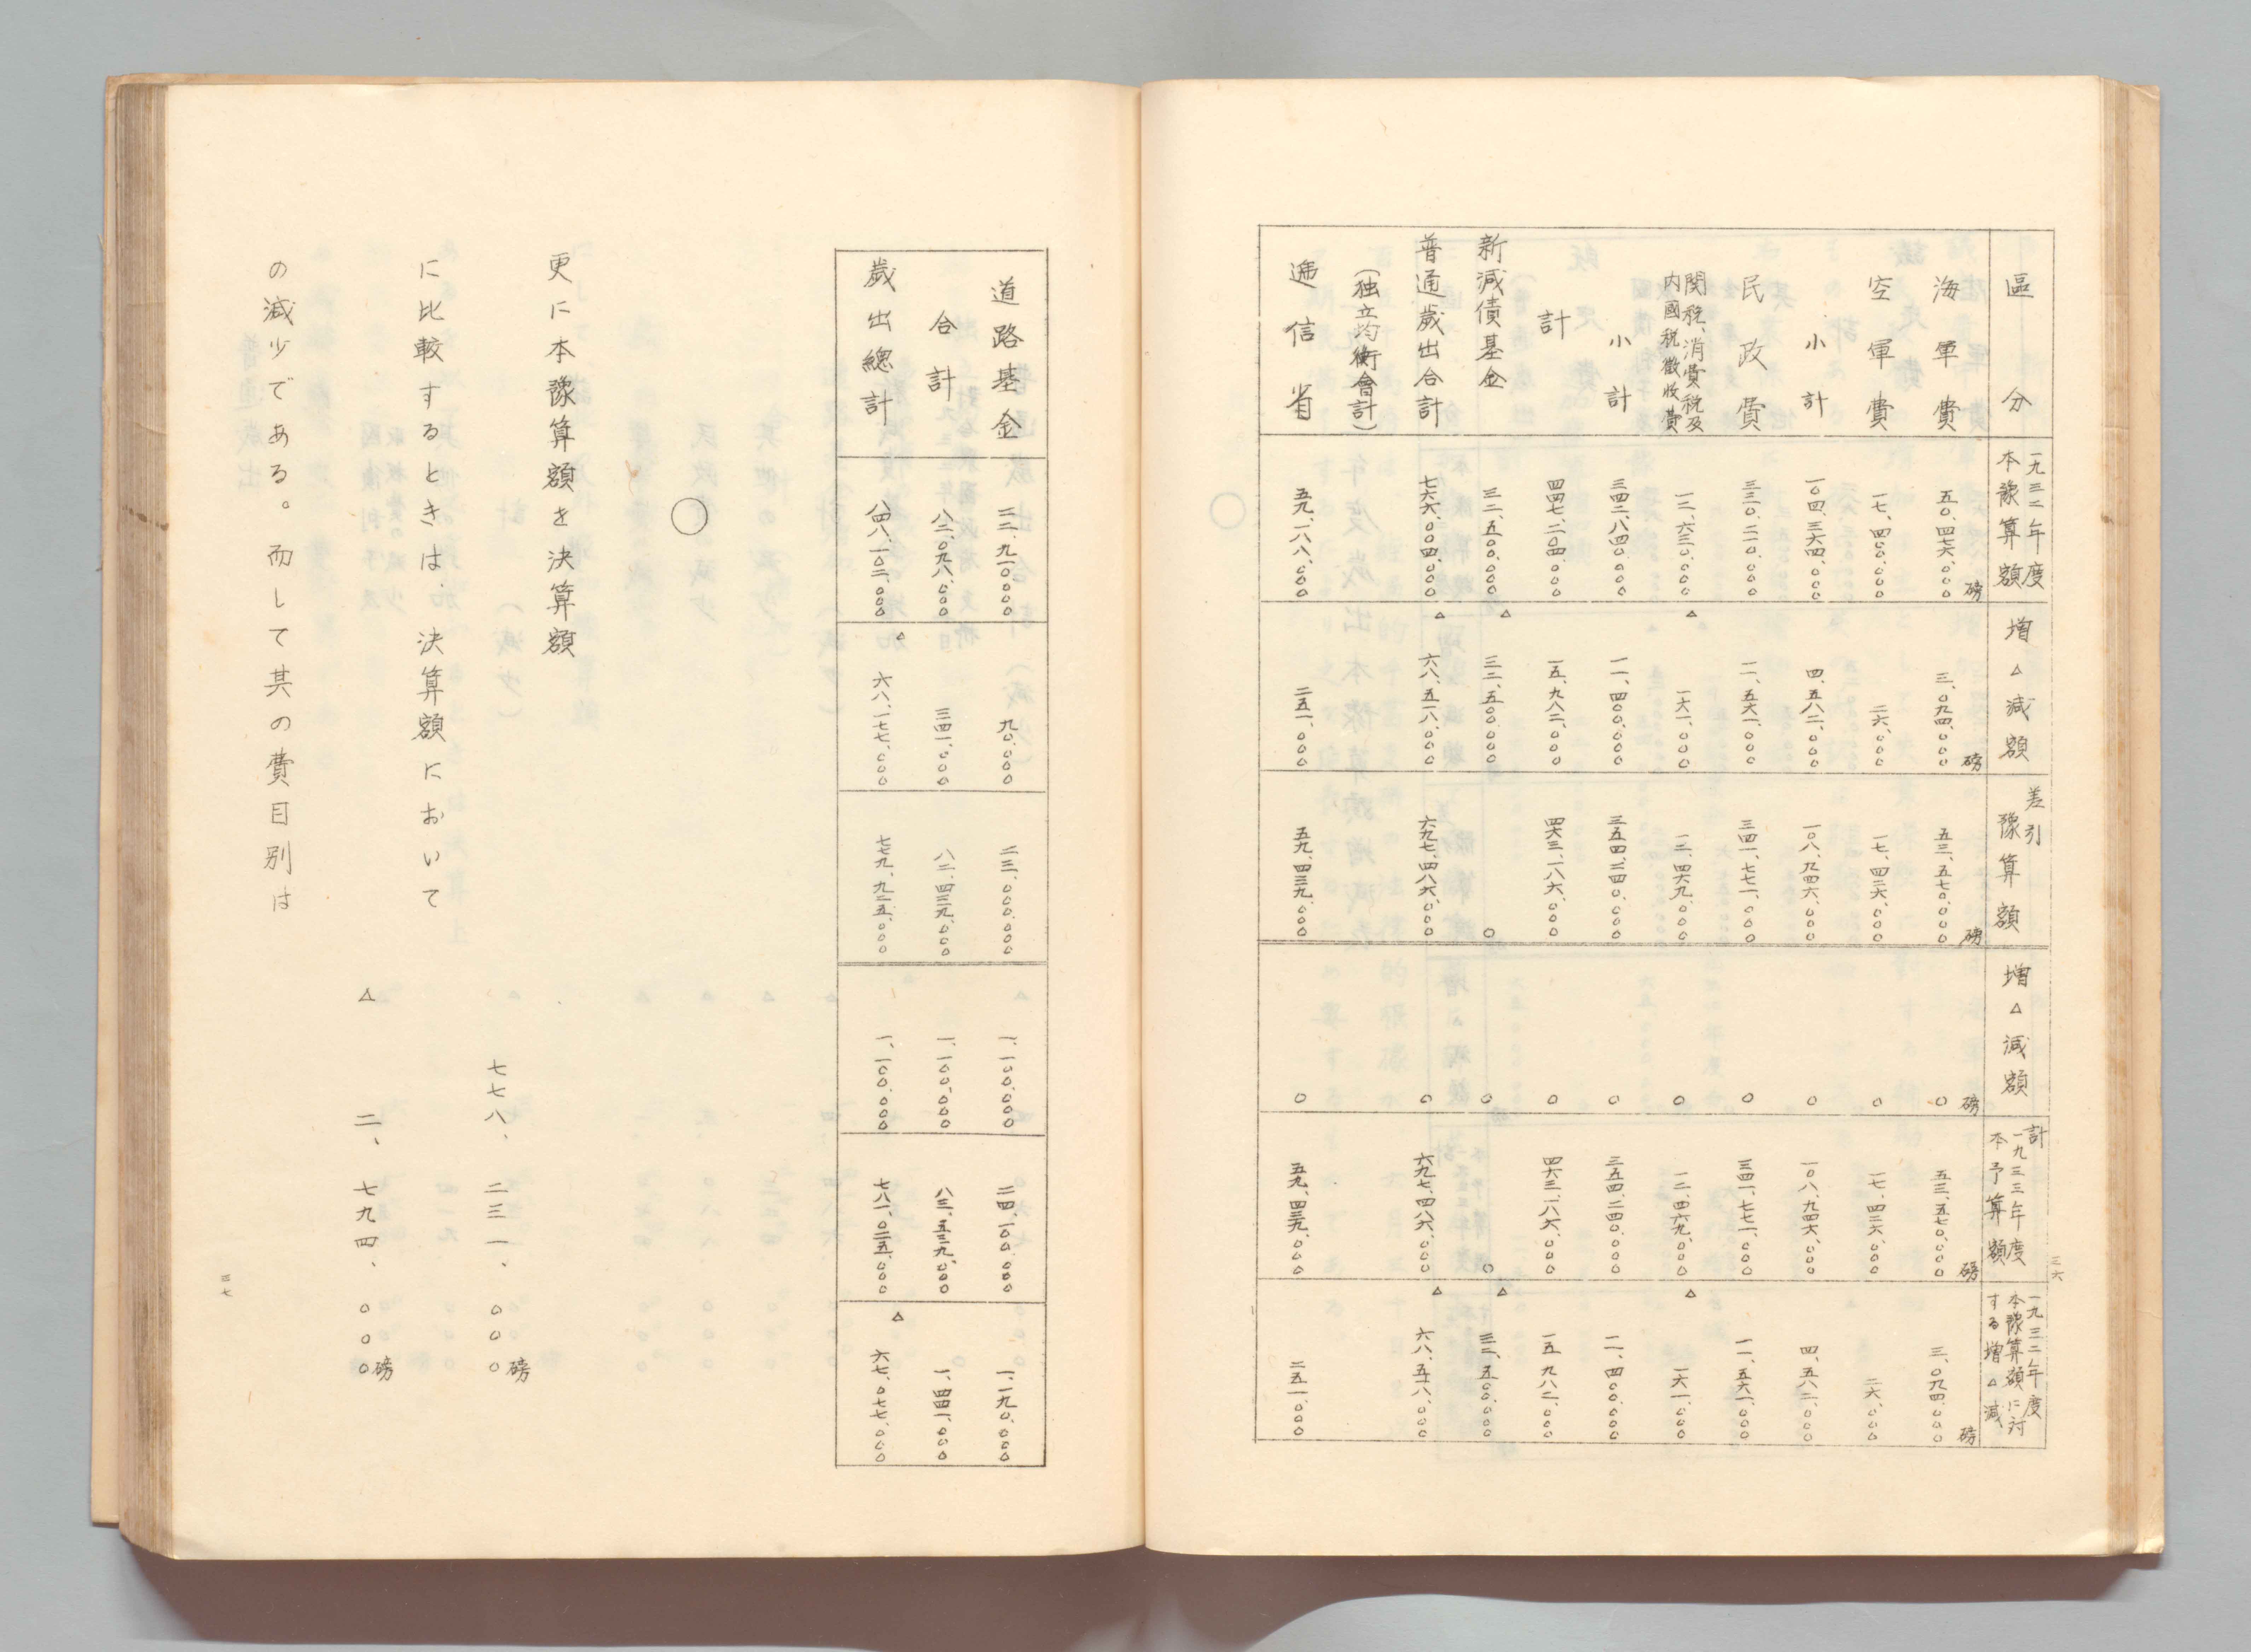 三六
區分 一九三二年度本豫算額 増△減額 差引豫算額 増△減額 計一九三三年度本予算額 一九三二年度本豫算額に対する増△減
海軍費 五〇、四七六、〇〇〇磅 三、〇九四、〇〇〇磅 五三、五七〇、〇〇〇磅 〇磅 五三、五七〇、〇〇〇磅 三、〇九四、〇〇〇磅
空軍費 一七、四〇〇、〇〇〇 二六、〇〇〇 一七、四二六、〇〇〇 〇 一七、四二六、〇〇〇 二六、〇〇〇
小計 一〇四、三六四、〇〇〇 四、五八二、〇〇〇 一〇八、九四六、〇〇〇 〇 一〇八、九四六、〇〇〇 四、五八二、〇〇〇
民政費 三三〇、二一〇、〇〇〇 一一、五六一、〇〇〇 三四一、七七一、〇〇〇 〇 三四一、七七一、〇〇〇 一一、五六一、〇〇〇
関税、消費税及内國税徴收費 一二、六三〇、〇〇〇 △一六一、〇〇〇 一二、四六九、〇〇〇 〇 一二、四六九、〇〇〇 △一六一、〇〇〇
小計 三四二、八四〇、〇〇〇 一一、四〇〇、〇〇〇 三五四、二四〇、〇〇〇 〇 三五四、二四〇、〇〇〇 一一、四〇〇、〇〇〇
計 四四七、二〇四、〇〇〇 一五、九八二、〇〇〇 四六三、一八六、〇〇〇 〇 四六三、一八六、〇〇〇 一五、九八二、〇〇〇
新減債基金 三二、五〇〇、〇〇〇 △三二、五〇〇、〇〇〇 〇 〇 〇 △三二、五〇〇、〇〇〇
普通歳出合計 七六六、〇〇四、〇〇〇 △六八、五一八、〇〇〇 六九七、四八六、〇〇〇 〇 六九七、四八六、〇〇〇 △六八、五一八、〇〇〇
（独立均衡會計）
逓信省 五九、一八八、〇〇〇 二五一、〇〇〇 五九、四三九、〇〇〇 〇 五九、四三九、〇〇〇 二五一、〇〇〇
道路基金 二二、九一〇、〇〇〇 九〇、〇〇〇 二三、〇〇〇、〇〇〇 一、一〇〇、〇〇〇 二四、一〇〇、〇〇〇 一、一九〇、〇〇〇
合計 八二、〇九八、〇〇〇 三四一、〇〇〇 八二、四三九、〇〇〇 一、一〇〇、〇〇〇 八三、五三九、〇〇〇 一、四四一、〇〇〇
歳出總計 八四八、一〇二、〇〇〇 △六八、一七七、〇〇〇 七七九、九二五、〇〇〇 一、一〇〇、〇〇〇 七八一、〇二五、〇〇〇 △六七、〇七七、〇〇〇
〇
更に本豫算額を決算額
七七八、二三一、〇〇〇磅
に比較するときは、決算額において
△二、七九四、〇〇〇磅
の減少である。而して其の費目別は
三七